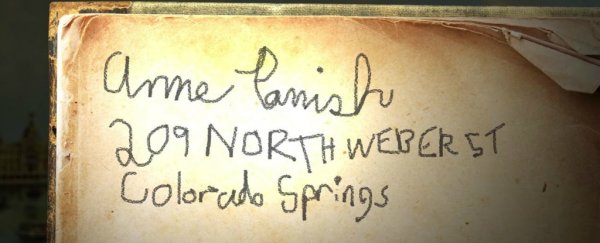 Anne Parrish
209 NORTH WEBER ST
Colorado Springs